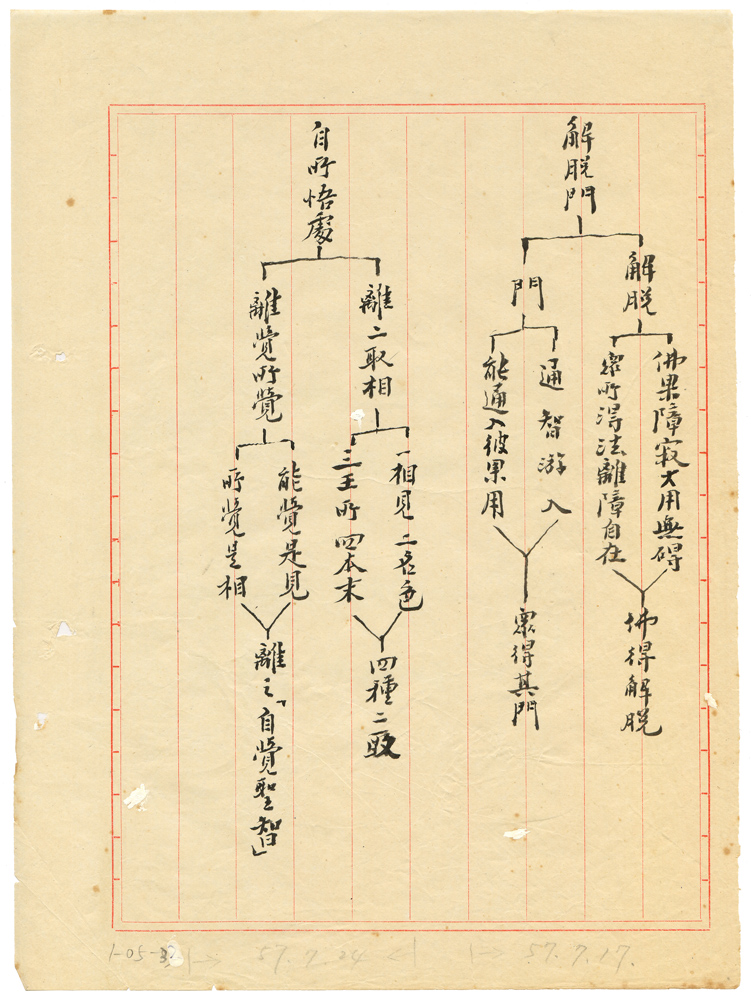 解脱門
解脱
佛果障寂大用無碍
眾所得法離障自在
佛得解脱
門
通智游入
能通入彼果用
眾得其門
自所悟處
離二取相
一相見 二名色
三王所 四本末
四種二取
離覺所覺
能覺是見
所覺是相
離之「自覺聖智」
1-05-3
57.7.24
57.7.17.